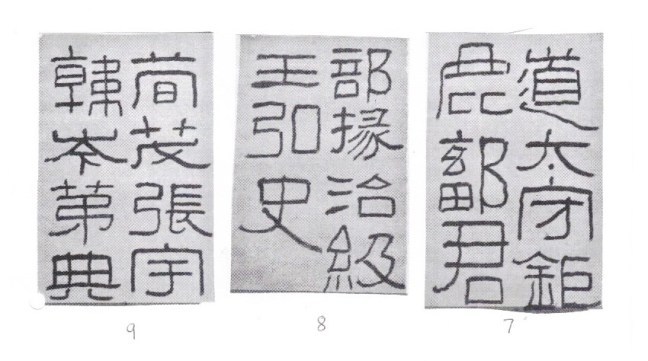 道太守鉅
鹿鄐君
7
部掾治級
王弘史
8
荀茂張宇
韓岑第典
9